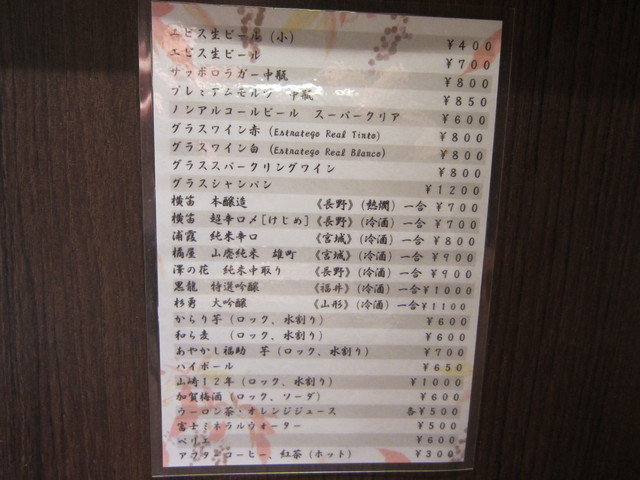 エビス生ビール(小) ¥400
エビス生ビール ¥700
サッポロラガー中瓶 ¥800
プレミアムモルツ 中瓶 ¥850
ノンアルコールビール スーパークリア ¥600
グラスワイン赤 (Estratego Real Tinto) ¥800
グラスワイン白 (Estratego Real Blanco) ¥800
グラススパークリングワイン ¥800
グラスシャンパン ¥1200
横笛 本醸造 《長野》(熱燗) 一合 ¥700
横笛 超辛口〆[けじめ] 《長野》(冷酒) 一合 ¥700
浦霞 純米辛口 《宮城》(冷酒) 一合 ¥800
橘屋 山廃純米 雄町 《宮城》(冷酒) 一合 ¥900
澤の花 純米中取り 《長野》(冷酒) 一合 ¥900
黒龍 特選吟醸 《福井》(冷酒) 一合¥1000
杉勇 大吟醸 《山形》(冷酒) 一合¥1100
からり芋(ロック、水割り) ¥600
和ら麦 (ロック、水割り) ¥600
あやかし福助 芋(ロック、水割り) ¥700
ハイボール ¥650
山崎12年(ロック、水割り) ¥1000
加賀梅酒(ロック、ソーダ) ¥600
ウーロン茶・オレンジジュース 各¥500
富士ミネラルウォーター ¥500
ペリエ ¥600
アフターコーヒー、紅茶(ホット) ¥300